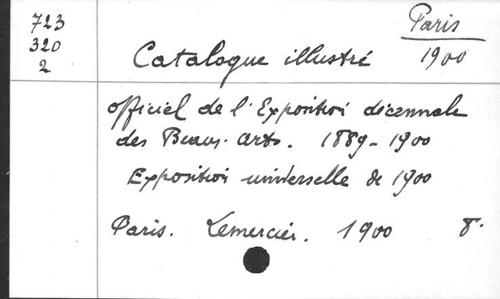 723
320
2
Paris
1900
Catalogue illustré
officiel de l'Exposition décennale
des Beaux-Arts. 1889-1900
Exposition universelle de 1900
Paris. Lemercier. 1900 8°.